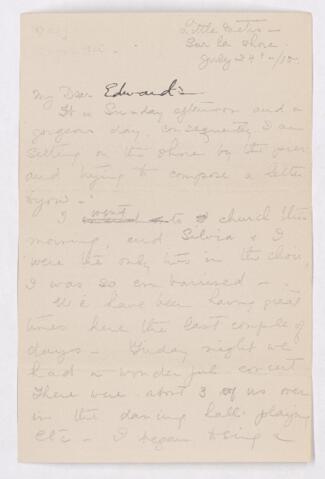 Little Metis -
Sur la Shore
July 24th - /10.
My Dear Edwards
It is Sunday afternoon and a
gorgeous day, consequently I am
sitting on the shore by the pier
and trying to compose a letter
to you -
I went to church this
morning, and Silvia & I
were the only two in the choir,
I was so embarrised -.
We have been having great
times here the last couple of
days - Friday night we
had a wonderful concert
There were about 3 of us over
in the dancing hall playing
etc - I began being a